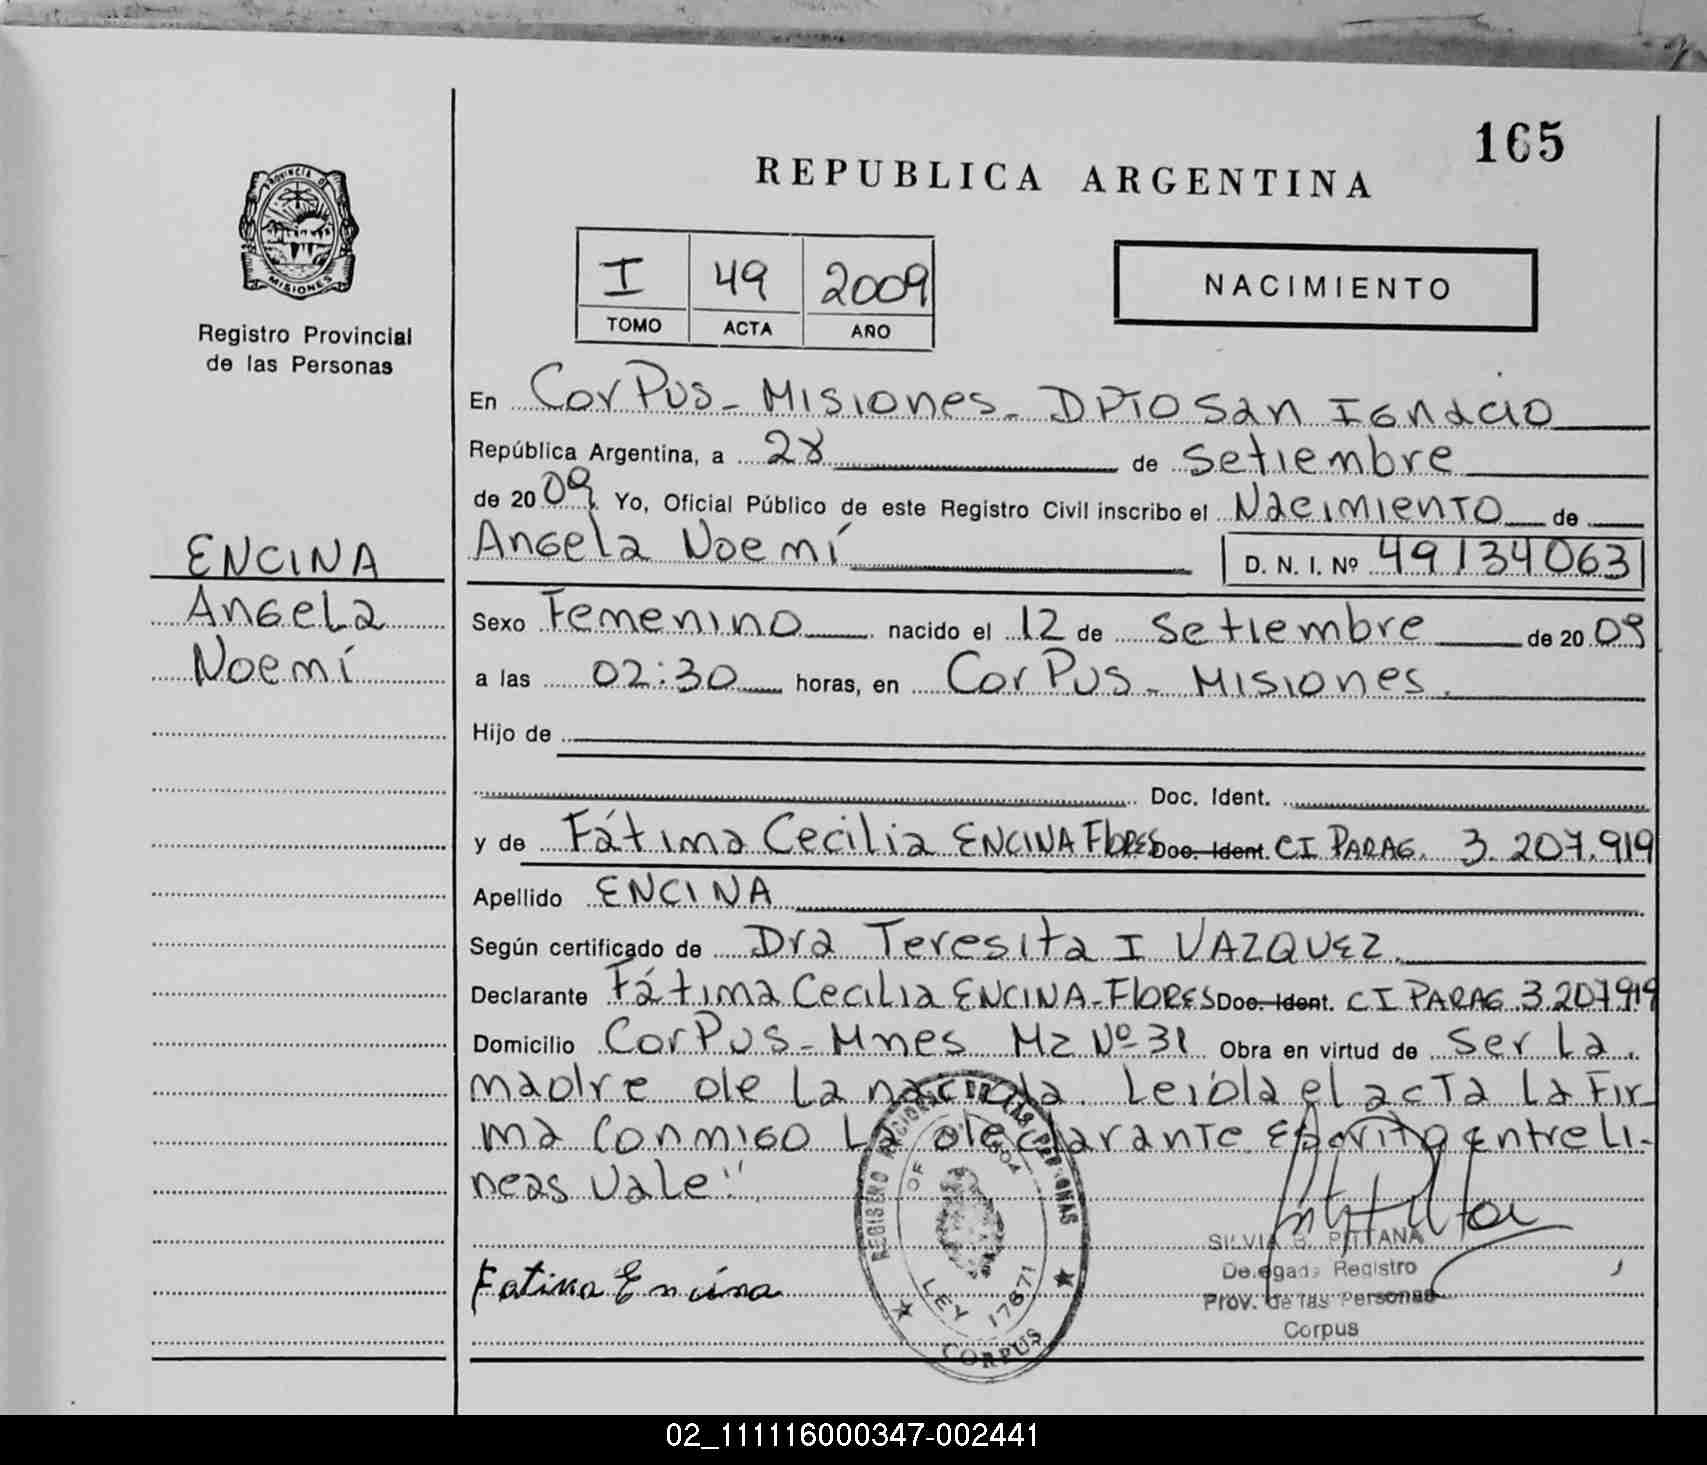 165
REPUBLICA ARGENTINA
PROVINCIA DE
MISIONES
Registro Provincial
de las Personas
I 49 2009
TOMO ACTA AÑO
NACIMIENTO
En Corpus - Misiones - DPTO San Ignacio
República Argentina, a 28 de Setiembre
de 2009 Yo, Oficial Público de este Registro Civil inscribo el Nacimiento de
Angela Noemí D. N. I. Nº 49134063
ENCINA
Angela
Noemí
Sexo Femenino nacido el 12 de Setiembre de 2009
a las 02:30 horas, en Corpus - Misiones.
Hijo de
Doc. Ident.
y de Fátima Cecilia ENCINA FlORES Doc. Ident. CI PARAG. 3.207.919
Apellido ENCINA
Según certificado de Dra Teresita I VAZQUEZ.
Declarante Fátima Cecilia ENCINA-FlORES Doc. Ident. CI PARAG 3.207.919
Domicilio Corpus - Mnes Mz Nº 31 Obra en virtud de ser la
madre de la nacida. Leída el acta la fir-
ma conmigo la declarante. Escrito entre li-
neas vale".
Fatima Encina
REGISTRO NACIONAL DE LAS PERSONAS
LEY 17671
CORPUS
SILVIA B. PITTANA
Delegada Registro
Prov. de las Personas
Corpus
02_111116000347-002441